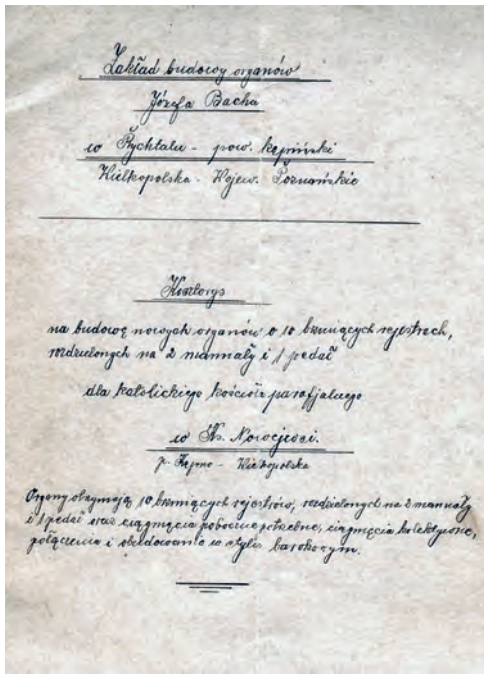 Zakład budowy organów
Józefa Bacha
w Rychtalu - pow. kępiński
Wielkopolska - Wojew. Poznańskie
Kosztorys
na budowę nowych organów o 10 brzmiących rejestrach,
rozdzielonych na 2 manuały i 1 pedał
dla katolickiego kościoła parafjalnego
w Ks. Nowejwsi.
p. Kępno - Wielkopolska
Organy otrzymają 10 brzmiących rejestrów, rozdzielonych na 2 manuały
i 1 pedał oraz ciągnięcia poboczne potrzebne, ciągnięcia kolektywne,
połączenia i obudowanie w stylu barokowym.